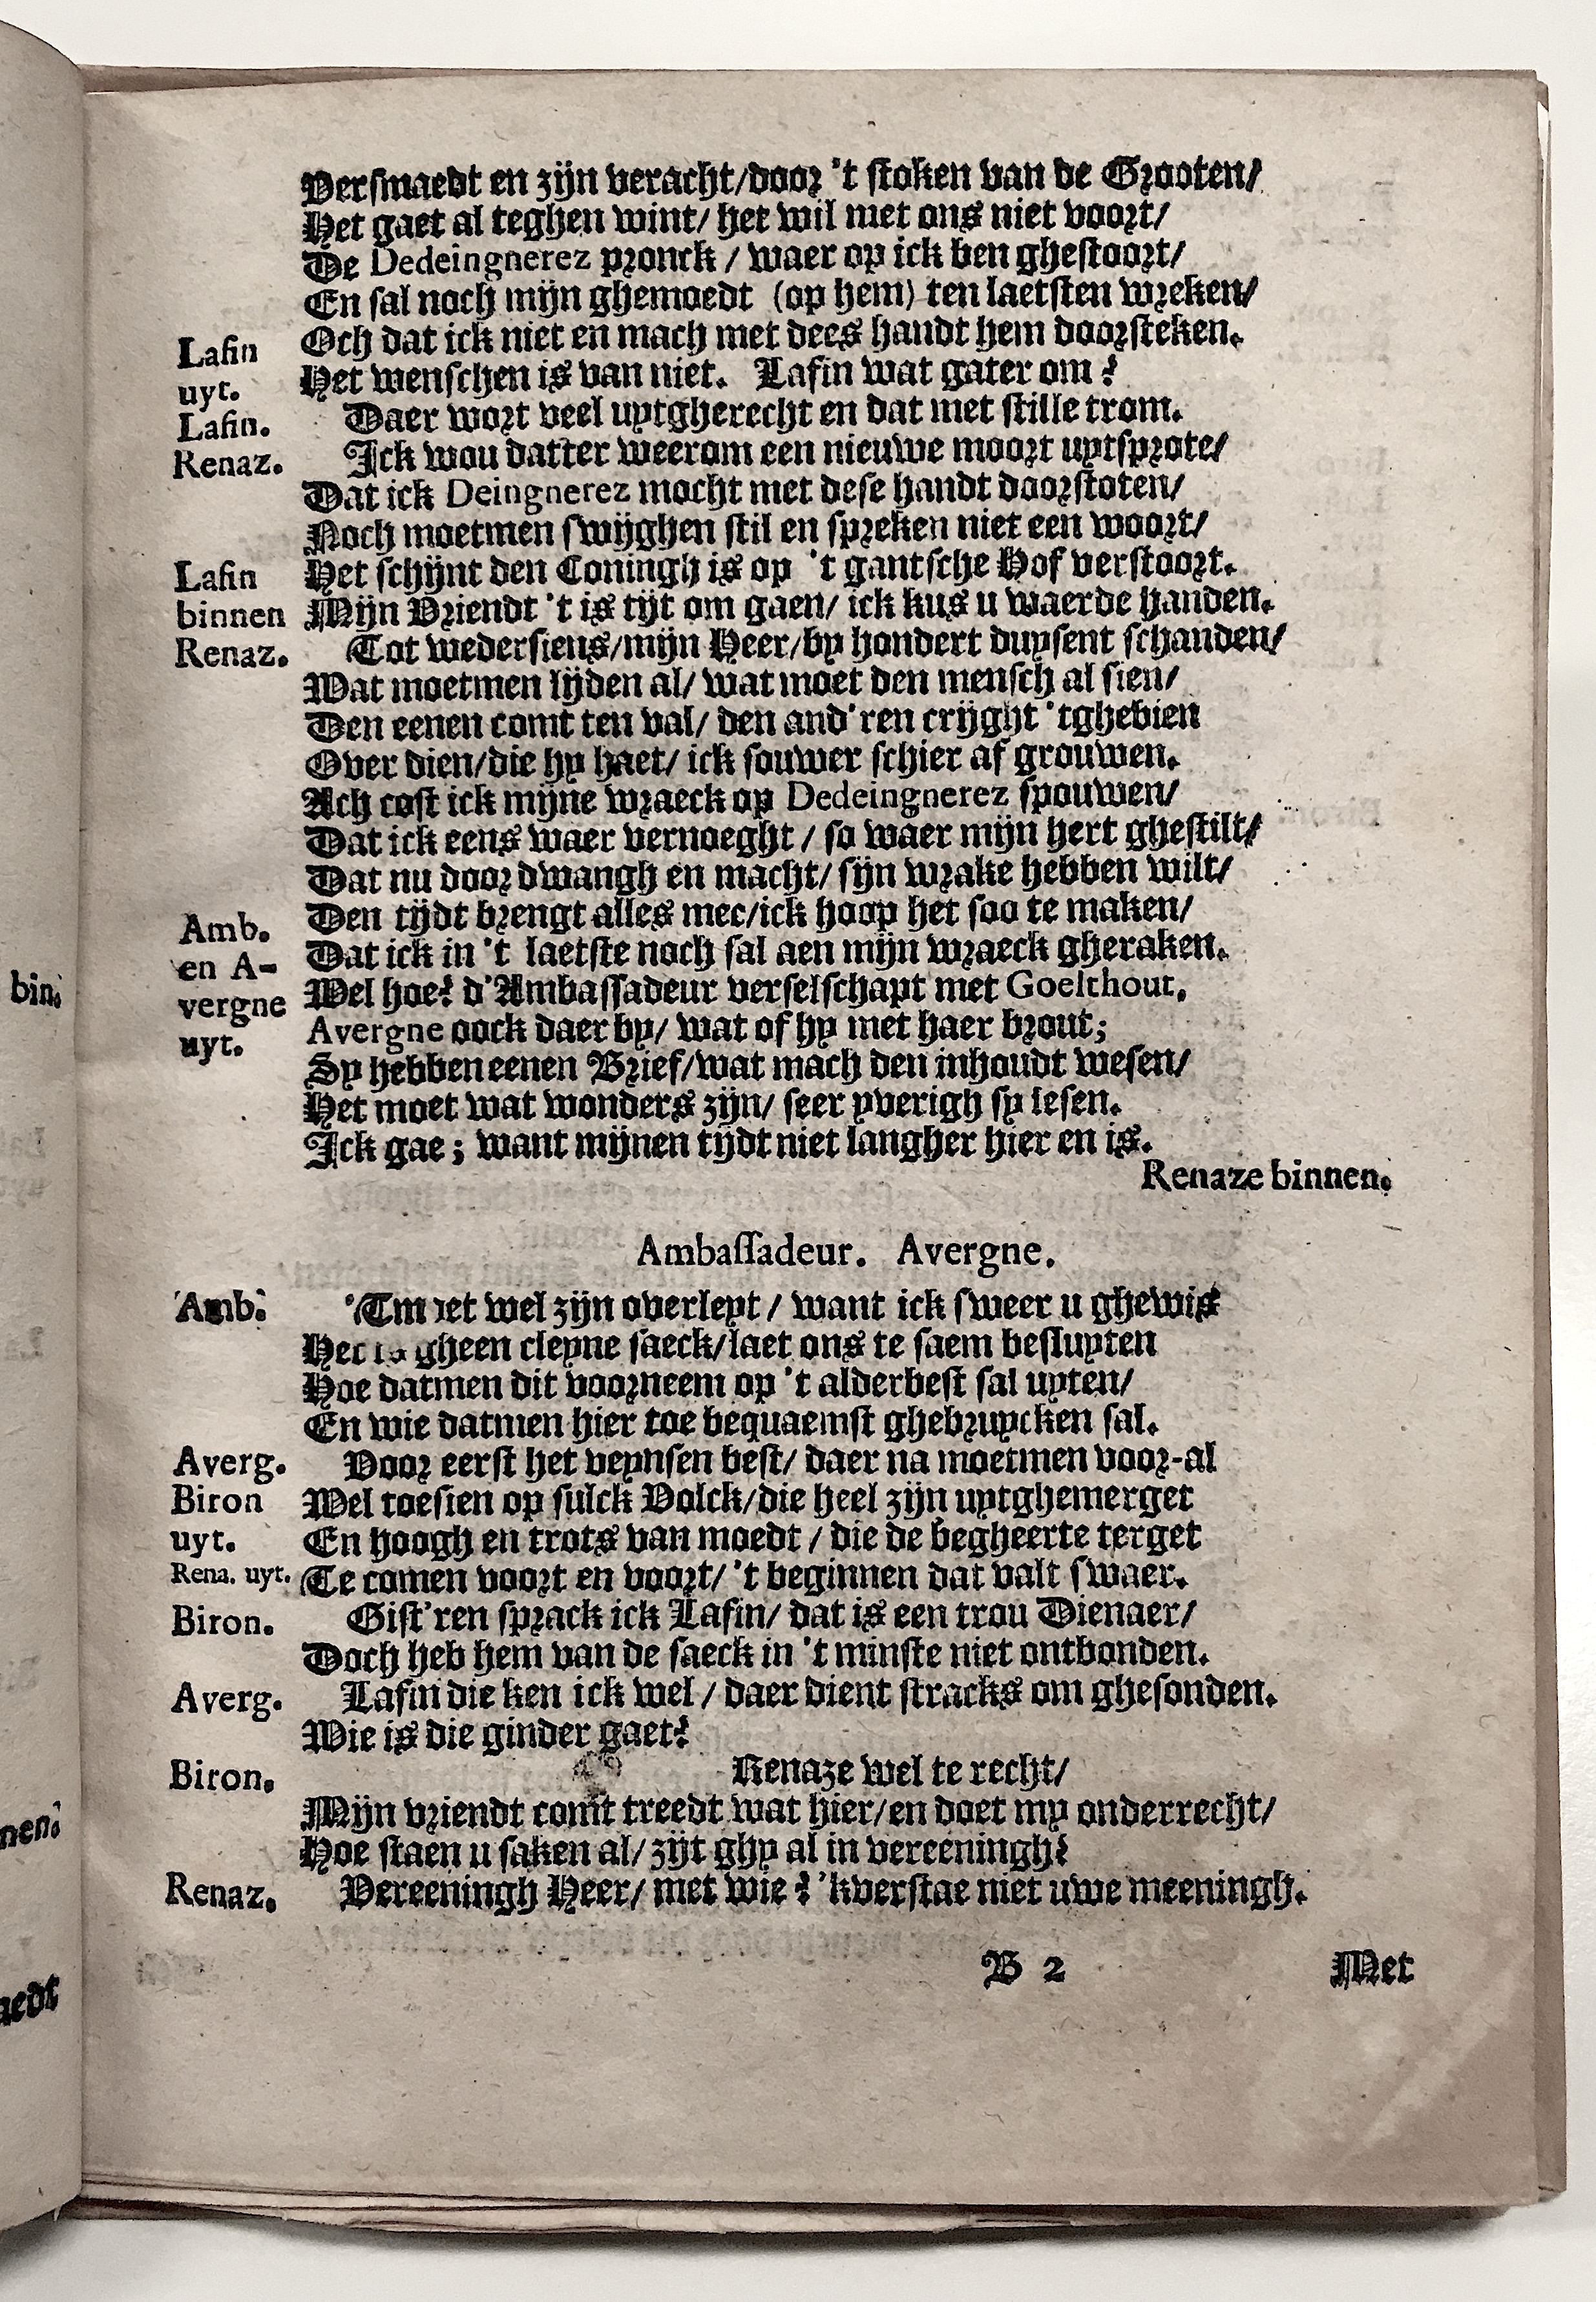 Versmaedt en zijn veracht/door 't stoken van de Grooten/
Het gaet al teghen wint/ het wil met ons niet voort/
De Dedeingnerez pronck / waer op ick ben ghestoort/
En sal noch mijn ghemoedt (op hem) ten laetsten wreken/
Lafin Och dat ick niet en mach met dees handt hem doorsteken.
uyt. Het wenschen is van niet. Lafin wat gater om?
Lafin. Daer wort veel uytgherecht en dat met stille trom.
Renaz. Ick wou datter weerom een nieuwe moort uytsprote/
Dat ick Deingnerez mocht met dese handt doorstoten/
Noch moetmen swijghen stil en spreken niet een woort/
Lafin Het schijnt den Coningh is op 't gantsche Hof verstoort.
binnen Mijn Vriendt 't is tijt om gaen/ ick kus u waerde handen.
Renaz. Tot wedersiens/mijn Heer/by hondert duysent schanden/
Wat moetmen lijden al/ wat moet den mensch al sien/
Den eenen comt ten val/ den and'ren crijght 'tghebien
Over dien/die hy haet/ ick souwer schier af grouwen.
Ach cost ick mijne wraeck op Dedeingnerez spouwen/
Dat ick eens waer vernoeght / so waer mijn hert ghestilt/
Dat nu door dwangh en macht/ sijn wrake hebben wilt/
Amb. Den tijdt brengt alles mee/ick hoop het soo te maken/
en A- Dat ick in 't laetste noch sal aen mijn wraeck gheraken.
bin.
vergne Wel hoe? d'Ambassadeur verselschapt met Goelthout.
uyt. Avergne oock daer by/ wat of hy met haer brout;
Sy hebben eenen Brief/wat mach den inhoudt wesen/
Het moet wat wonders zijn/ seer yverigh sy lesen.
Ick gae; want mijnen tijdt niet langher hier en is.
Renaze binnen.
Ambassadeur. Avergne.
Amb. 'Tmoet wel zijn overleyt / want ick sweer u ghewis
Het is gheen cleyne saeck/laet ons te saem besluyten
Hoe datmen dit voorneem op 't alderbest sal uyten/
En wie datmen hier toe bequaemst ghebruycken sal.
Averg. Voor eerst het veynsen best/ daer na moetmen voor-al
Biron Wel toesien op sulck Volck/die heel zijn uytghemerget
uyt. En hoogh en trots van moedt / die de begheerte terget
Rena. uyt. Te comen voort en voort/ 't beginnen dat valt swaer.
Biron. Gist'ren sprack ick Lafin/ dat is een trou Dienaer/
Doch heb hem van de saeck in 't minste niet ontbonden.
Averg. Lafin die ken ick wel / daer dient stracks om ghesonden.
Wie is die ginder gaet?
Biron. Renaze wel te recht/
Mijn vriendt comt treedt wat hier/en doet my onderrecht/
nen.
Hoe staen u saken al/ zijt ghy al in vereeningh?
Renaz. Vereeningh Heer/ met wie? 'kverstae niet uwe meeningh.
B 2 Met
aedt